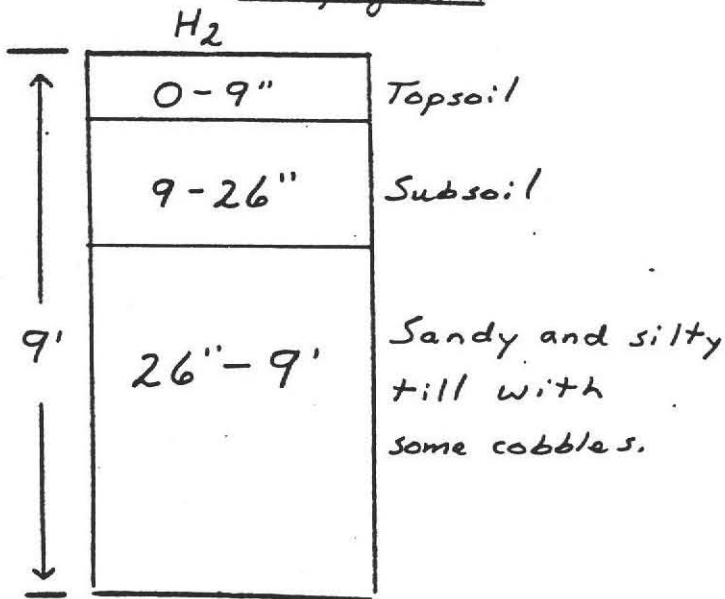 H2
0-9" Topsoil
9-26" Subsoil
9'
26"-9'
Sandy and silty
till with
some cobbles.